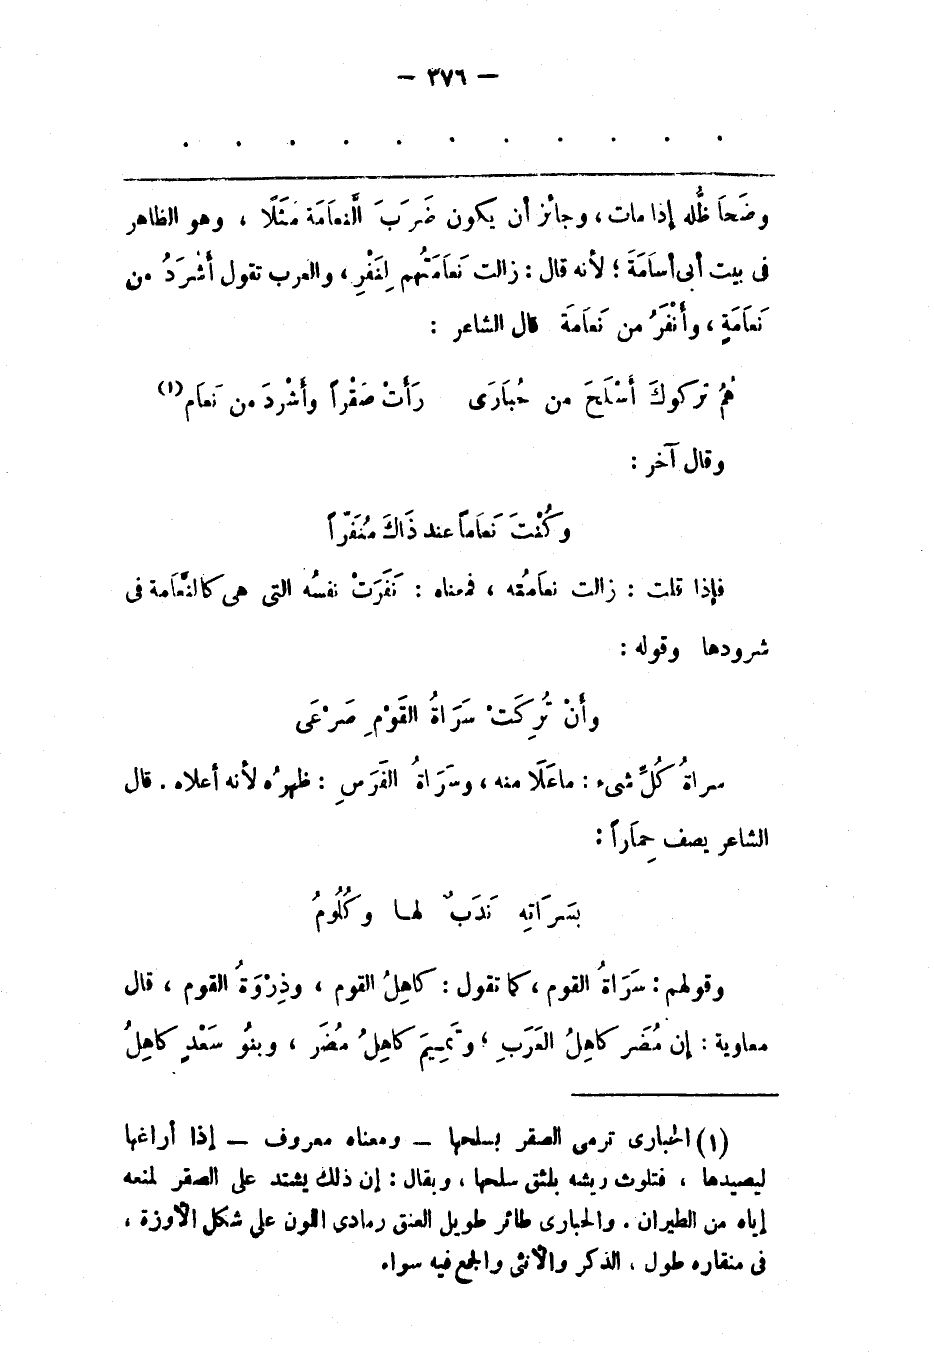 — ٣٧٦ —
. . . . . . . . . . .
وضَحاَ ظُّله إذا مات ، وجائز أن يكون ضَرَبَ النَّعاَمَة مَثَلًا ، وهو الظاهر
فى بيت أبى أساَمَةَ ؛ لأنه قال : زالت نَعاَمَتُهم لِنَفْرٍ ، والعرب تقول أَشْرَدُ من
نَعاَمَةٍ ، وأَنْفَرُ من نَعاَمَة قال الشاعر :
هُمُ تركوكَ أَسْلَحَ من حُبَارَى رَأَتْ صَقْراً وأَشْردَ من نَعاَم(١)
وقال آخر :
وكُنْتَ نَعاَماً عند ذَاكَ مُنَفّرَاً
فإذا قلت : زالت نعاَمتُه ، فمعناه : نَفَرَتْ نفسُه التى هى كالنَّعاَمة فى
شرودها وقوله :
وأَنْ تُرِكَتْ سَرَاةُ القَوْمِ صَرْعَى
سراةُ كُلِّ شىء : ماعَلَا منه ، وسَرَاةُ الفَرَسِ : ظهرُه لأنه أعلاه . قال
الشاعر يصف حِماَراً :
بسَرَاتِهِ نَدَبٌ لهـا وكُلُومُ
وقولهم : سَرَاةُ القوم ، كما تقول : كاهِلُ القوم ، وذِرْوَةُ القوم ، قال
معاوية : إن مُضَر كاهِلُ العَرَبِ ؛ وتَمِيمَ كاهِلُ مُضَر ، وبنُو سَعْدٍ كاهِلُ
(١) الحبارى ترمى الصقر بسلحها — ومعناه معروف — إذا أراغها
ليصيدها ، فتلوث ريشه بلثق سلحها ، ويقال : إن ذلك يشتد على الصقر لمنعه
إياه من الطيران . والحبارى طائر طويل العنق رمادى اللون على شكل الأوزة ،
فى منقاره طول ، الذكر والأنثى والجمع فيه سواء